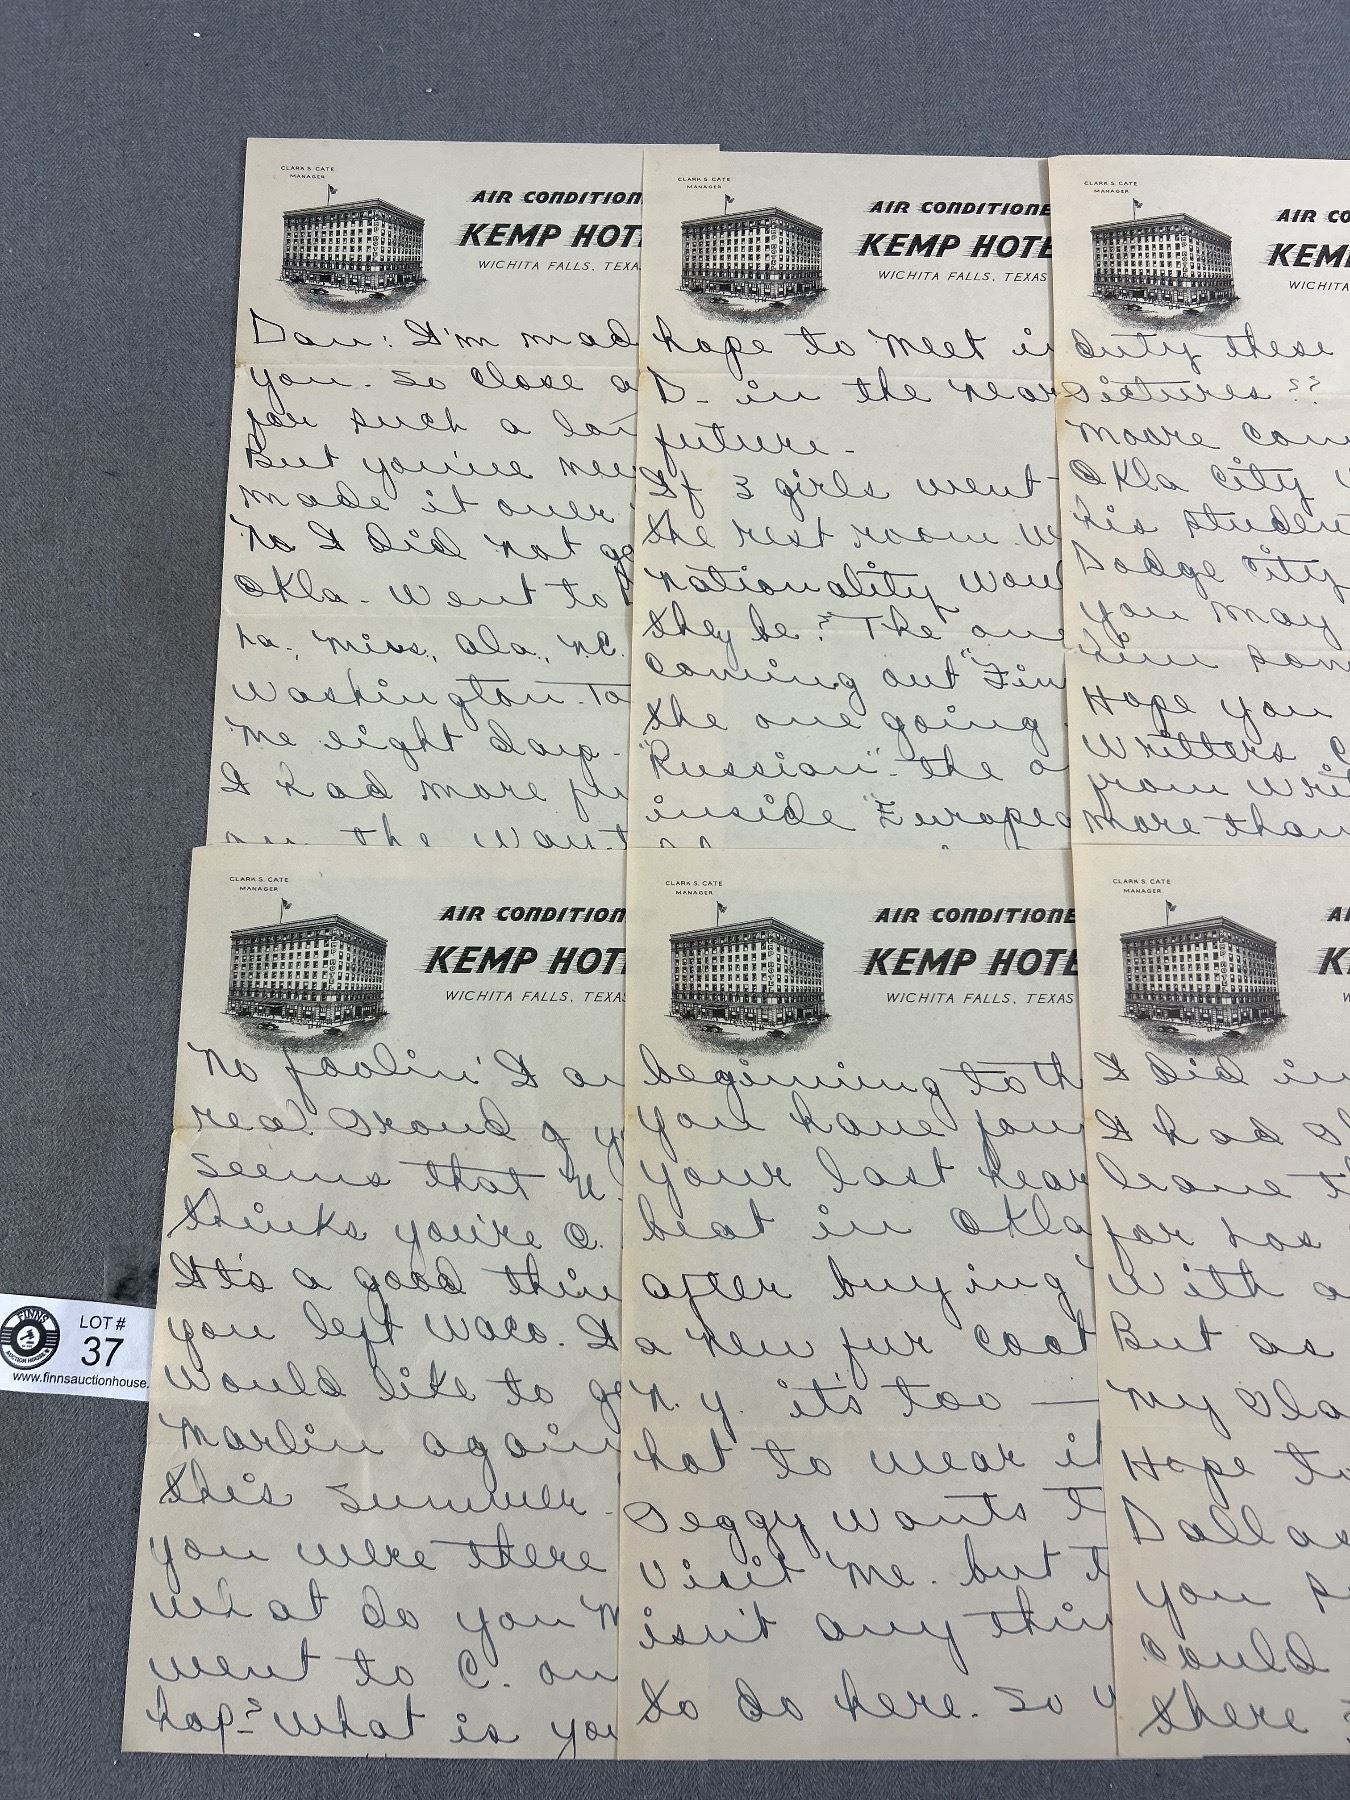 CLARK S. CATE
MANAGER
AIR CONDITION
KEMP HOT
WICHITA FALLS, TEXA
Dan: I'm mad
you. So close a
for such a
But you've
made it over
No I did not
Okla. Went to
La., Miss., Ala., N.C.
Washington. To
me eight days.
I had more fu
on the way
CLARK S. CATE
MANAGER
AIR CONDITIONE
KEMP HOTE
WICHITA FALLS, TEXAS
hope to meet i
D- in the near
future.
If 3 girls went
the rest room w
nationality woul
they be? The one
coming out "Fin
the one going
"Russian". the o
inside "Europea
CLARK S. CATE
MANAGER
AIR CO
KEM
WICHITA
Duty these
Pictures??
Moore
Okla City
his studen
Dodge City
you may
him som
Hope you
Writters C
from writ
more than
CLARK S. CATE
MANAGER
AIR CONDITION
KEMP HOT
WICHITA FALLS, TEXAS
No foolin' I a
real proud of y
seems that
thinks you're O.
It's a good thin
you left Waco. I
would like to g
Marlin again
this summer.
you were there
what do you
went to C. on
hop? What is you
CLARK S. CATE
MANAGER
AIR CONDITIONE
KEMP HOTE
WICHITA FALLS, TEXAS
beginning to th
you have foun
your last hear
beat in Okla
after buying
a new fur coat
N.Y. it's too —
hot to wear it
Peggy wants t
visit me. but t
isn't any thin
to do here. So y
CLARK S. CATE
MANAGER
AI
K
W
I did in
I had pl
leave t
for Los
With a
But as
my pla
Hope to
Dallas
you
could
there
FINNS
AUCTION HOUSE
LOT #
37
www.finnsauctionhouse.